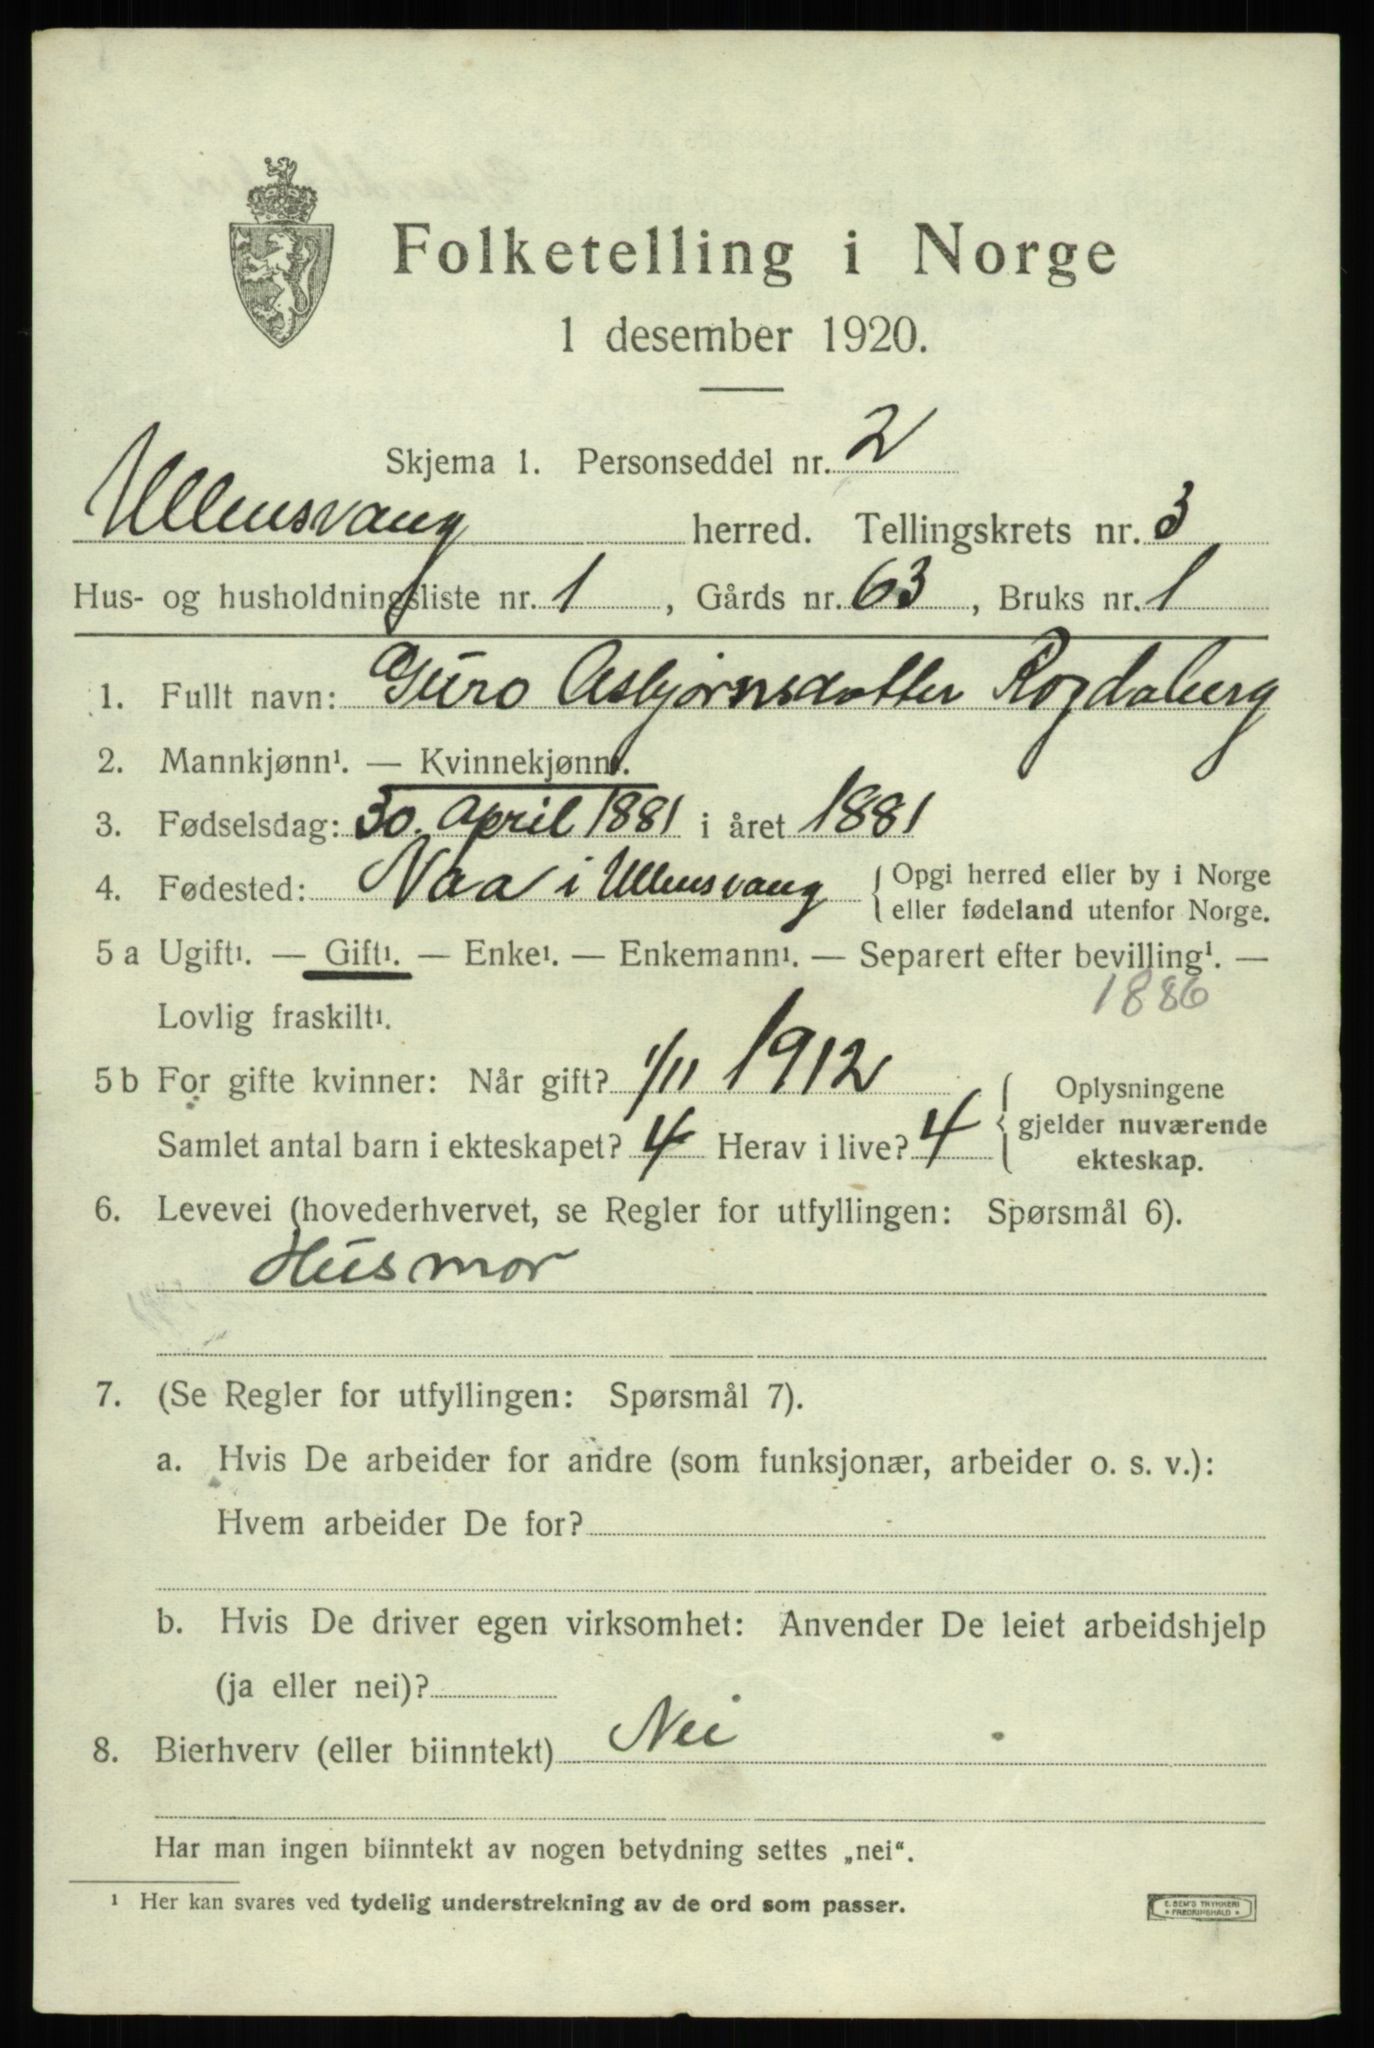 Folketelling i Norge
1 desember 1920.
Skjema 1. Personseddel nr. 2
Ullensvang herred. Tellingskrets nr. 3
Hus- og husholdningsliste nr. 1, Gårds nr. 63, Bruks nr. 1
1. Fullt navn: Guro Asbjørnsdatter Rogdaberg
2. Mannkjønn¹. — Kvinnekjønn¹.
3. Fødselsdag: 30. April 1881 i året 1881
4. Fødested: Naa i Ullensvang { Opgi herred eller by i Norge
eller fødeland utenfor Norge.
5 a Ugift¹. — Gift¹. — Enke¹. — Enkemann¹. — Separert efter bevilling¹. —
1886
Lovlig fraskilt¹.
5 b For gifte kvinner: Når gift? 1/11 1912 { Oplysningene
gjelder nuværende
Samlet antal barn i ekteskapet? 4 Herav i live? 4
ekteskap.
6. Levevei (hovederhvervet, se Regler for utfyllingen: Spørsmål 6).
Husmor
7. (Se Regler for utfyllingen: Spørsmål 7).
a. Hvis De arbeider for andre (som funksjonær, arbeider o. s. v.):
Hvem arbeider De for?
b. Hvis De driver egen virksomhet: Anvender De leiet arbeidshjelp
(ja eller nei)?
8. Bierhverv (eller biinntekt) Nei
Har man ingen biinntekt av nogen betydning settes „nei“.
¹ Her kan svares ved tydelig understrekning av de ord som passer.
E. SEM'S TRYKKERI
• FREDRIKSHALD •